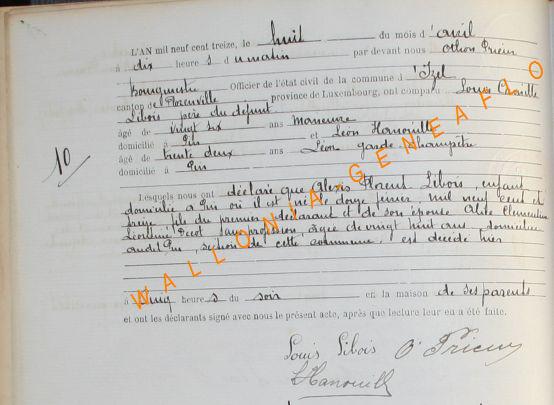 L'AN mil neuf cent treize, le huit du mois d'avril
à dix heures du matin par devant nous Othon Prieur
bourgmestre Officier de l'état civil de la commune d'Izel
canton de Florenville province de Luxembourg, ont comparu Louis
Libois père du défunt
âgé de vingt six ans manœuvre
domicilié à Pin et Léon Hanouille
âgé de trente deux ans garde champêtre
domicilié à Pin
10
Lesquels nous ont déclaré que Alexis Florent Libois, enfant
domicilié à Pin où il est né le douze février, mil neuf cent et
treize fils du premier déclarant et de son épouse Clémentine
sans profession, âgée de vingt huit ans, domiciliée
audit Pin, section de cette commune, est décédé hier
à cinq heures du soir en la maison de ses parents
et ont les déclarants signé avec nous le présent acte, après que lecture leur en a été faite.
Louis Libois O Prieur
L Hanouille
WALLONIA-GENEAFLO